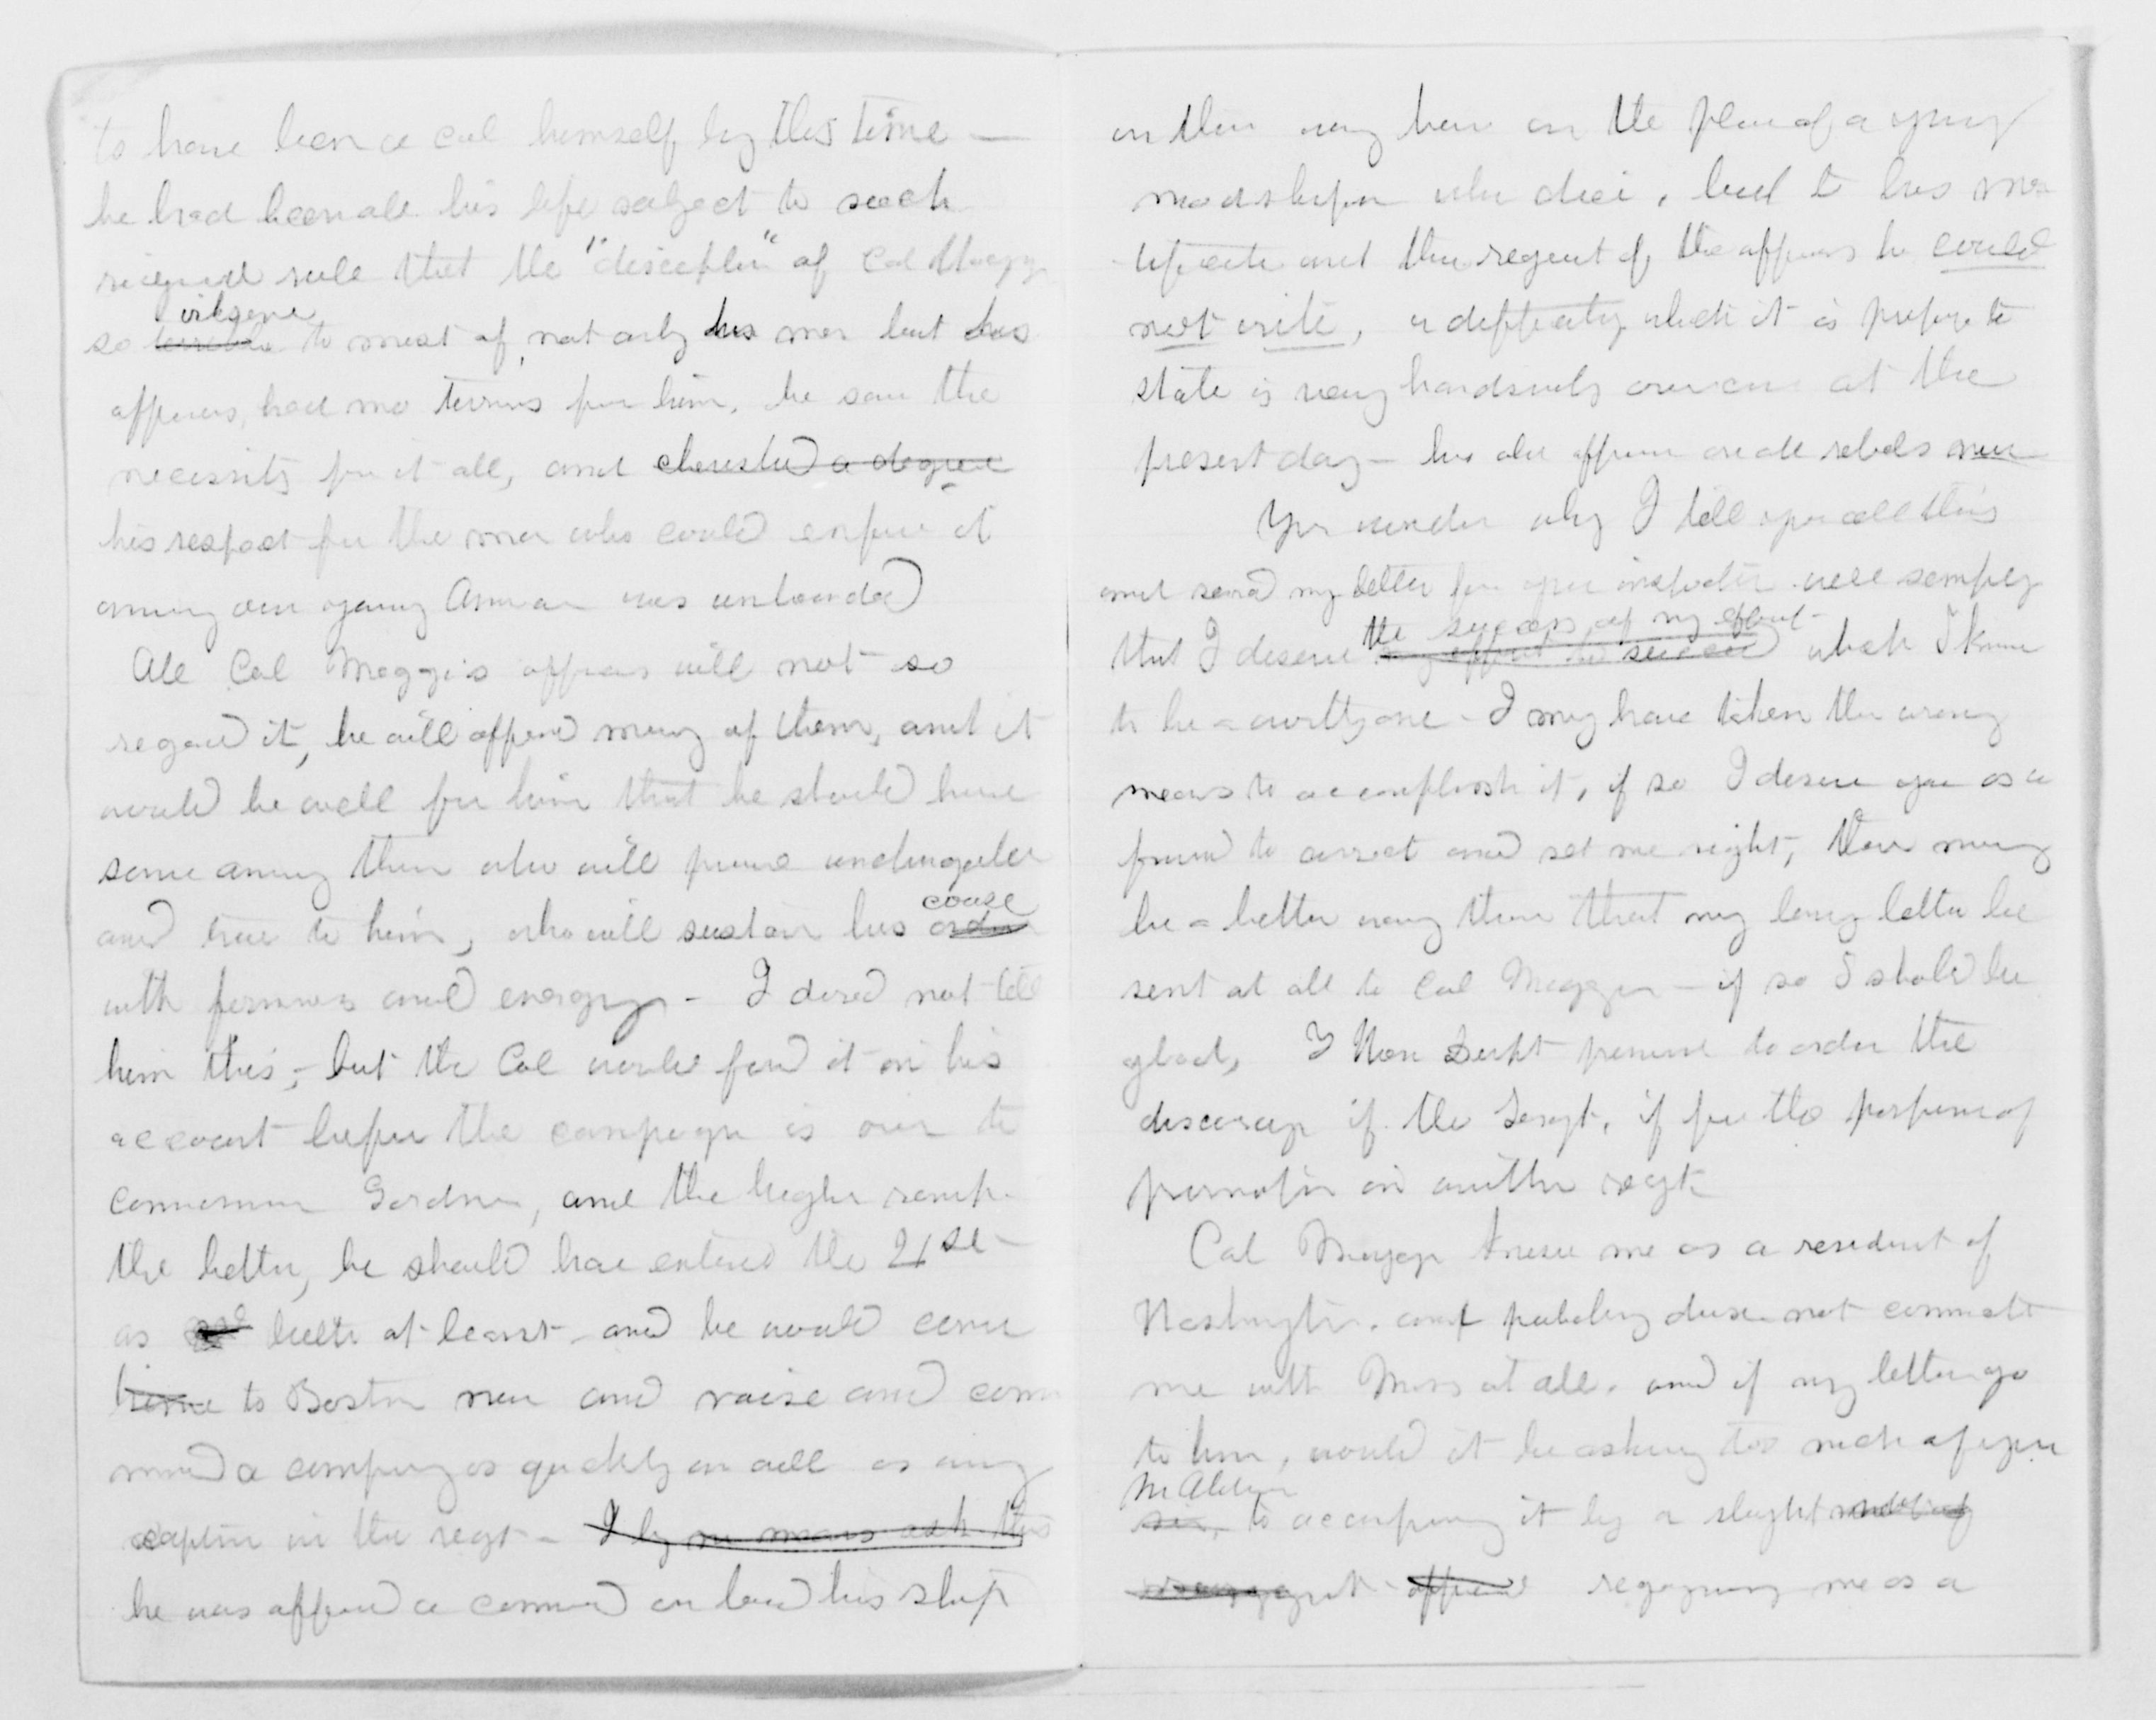 to have been a Col himself by this time —
he had been all his life subject to such
rigid rule that the "discipline" of Col Maggi
so irksome to most of, not only his men but his
officers, had no terrors for him, he saw the
necessity for it all, and cherished a degree
his respect for the man who could enforce it
among our young Army was unbounded
All Col Maggi's officers will not so
regard it, he will offend many of them, and it
would be well for him that he should have
some among them who will prove unchangeable
and true to him, who will sustain his order course
with firmness and energy - I dared not tell
him this, - but the Col would find it on his
account before the campaign is over to
commission Gardner, and the higher rank
the better, he should have entered the 21st
as Lieut at least - and he would come
home to Boston now and raise and com
mand a company as quickly and well as any
captain in the regt - I by no means ask this
he was offered a command on board his ship
on their way here in the place of a young
midshipman who died, but to his mor
tification and the regret of the officers he could
not write, a difficulty which it is proper to
state is very handsomely overcome at the
present day - his old officers are all rebels now
You wonder why I tell you all this
and send my letter for your inspection well simply
that I desire my effort to succeed the success of my effort - which I know
to be a worthy one - I may have taken the wrong
means to accomplish it, if so I desire you as a
friend to correct and set me right, there may
be a better way than that my long letter be
sent at all to Col Maggi - if so I should be
glad, I War Dept presume to order the
discharge of the Sergt, if for the purpose of
promotion in another regt
Col Maggi knew me as a resident of
Washington, and probably does not connect
me with Mass at all, and if my letter go
to him, would it be asking too much of you
sir, Mr Alden to accompany it by a slight
me as a